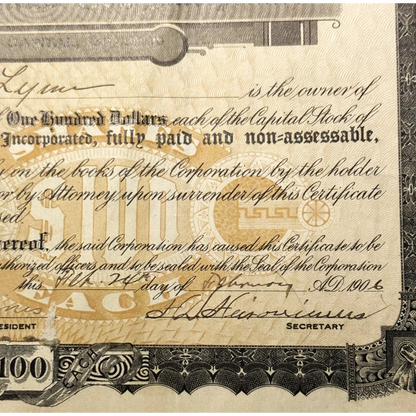 Lynn is the owner of
One Hundred Dollars each of the Capital Stock of
Incorporated, fully paid and non-assessable,
y on the books of the Corporation by the holder
or by Attorney upon surrender of this Certificate
sed.
hereof, the said Corporation has caused this Certificate to be
uthorized officers and to be sealed with the Seal of the Corporation
this day of February A.D. 1906
ESIDENT SECRETARY
$100
EACH
100 EACH